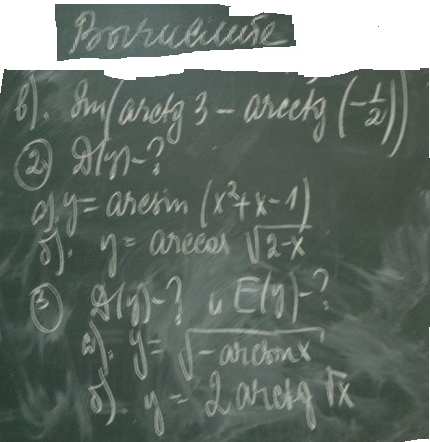 Вычислите
в). Sin(arctg 3 - arcctg (-1/2))
② D(y)-?
а). y = arcsin (x²+x-1)
б). y = arccos √(2-x)
③ D(y)-? и E(y)-?
а). y = √(-arcsinx)
б). y = 2 arctg √x